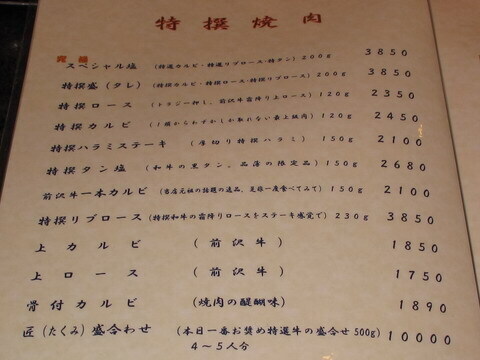 特撰焼肉
スペシャル塩 (特選カルビ・特選リブロース・特タン) 200g 3850
特撰盛(タレ) (特撰カルビ・特撰ロース・特撰リブロース) 200g 3850
特撰ロース (トモジー押し、前沢牛霜降り上ロース) 120g 2350
特撰カルビ (1頭からわずかしか取れない最上級肉) 120g 2450
特撰ハラミステーキ (厚切り特撰ハラミ) 150g 2100
特撰タン塩 (和牛の黒タン、品薄の限定品) 150g 2680
前沢牛一本カルビ (当店元祖の話題の逸品、是非一度食べてみて) 150g 2100
特撰リブロース (特撰和牛の霜降りロースをステーキ感覚で) 230g 3850
上カルビ (前沢牛) 1850
上ロース (前沢牛) 1750
骨付カルビ (焼肉の醍醐味) 1890
匠(たくみ)盛合わせ (本日一番お奨め特選牛の盛合せ500g) 10000
4～5人分